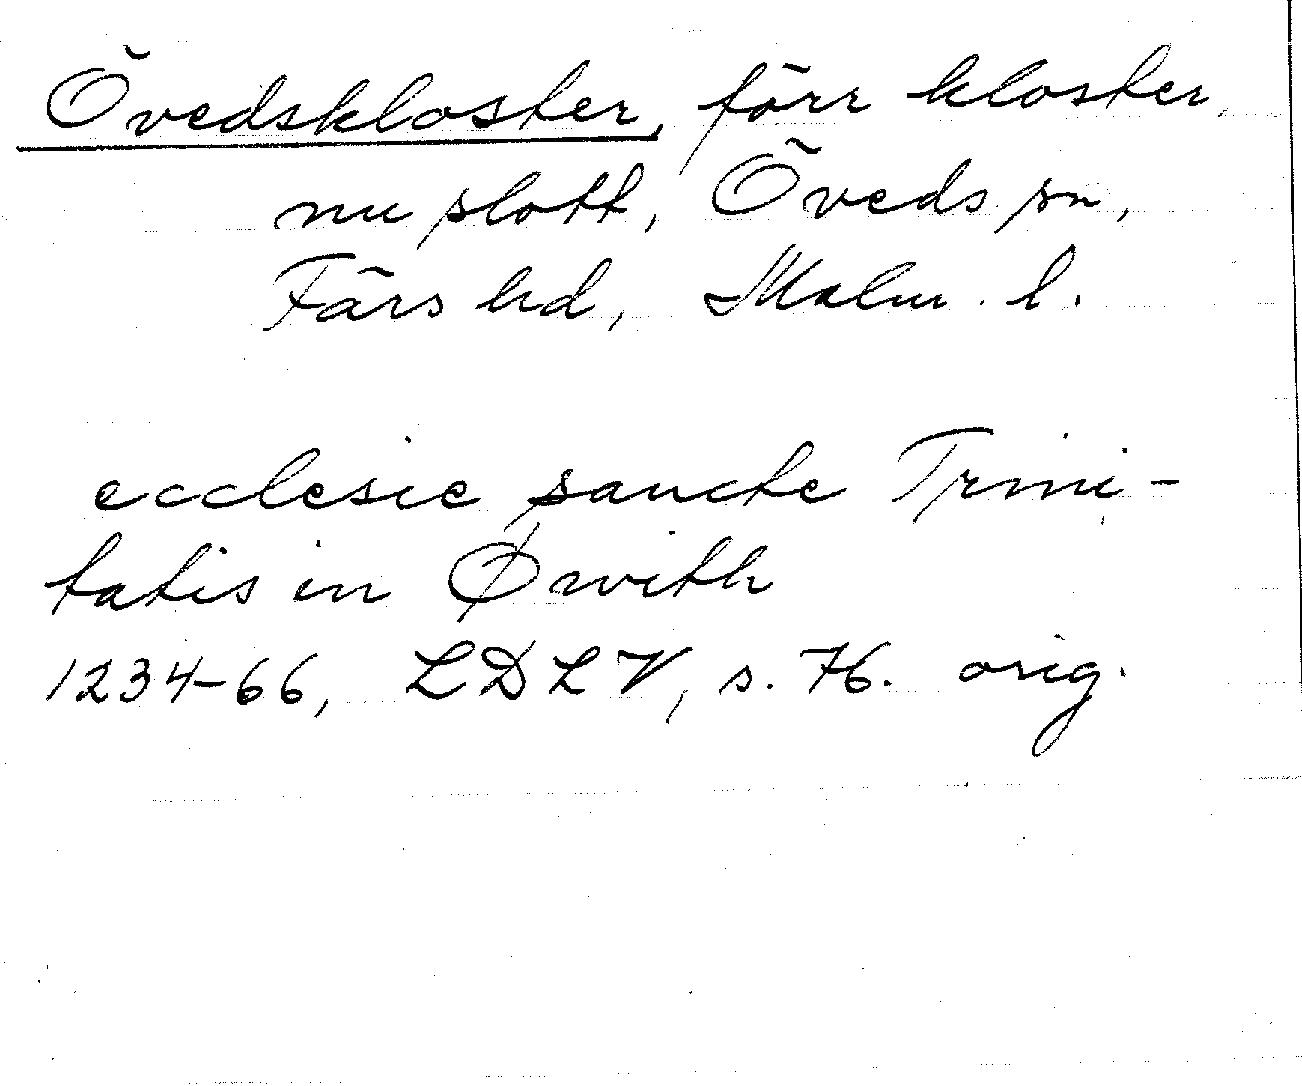 Övedskloster, förr kloster,
nu slott, Öveds sn,
Färs hd, Malm. l.
ecclesie sancte Trini-
tatis in Øwith
1234-66, LDLV, s. 76. orig.